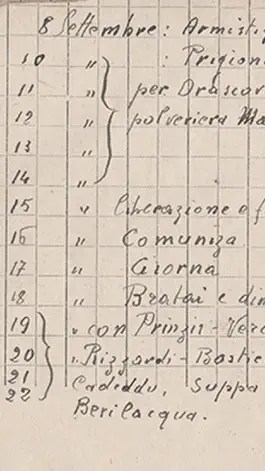 8 Settembre: Armisti
10 " : Prigion
11 " per Drascov
12 " polveriera Ma
13 "
14 "
15 " liberazione e f
16 " Comuniza
17 " Giorna
18 " Bratai e din
19 " con Prinzis - Verc
20 " Rizzardi - Bastie
21 Cadeddu, Suppa
22 Berilacqua.